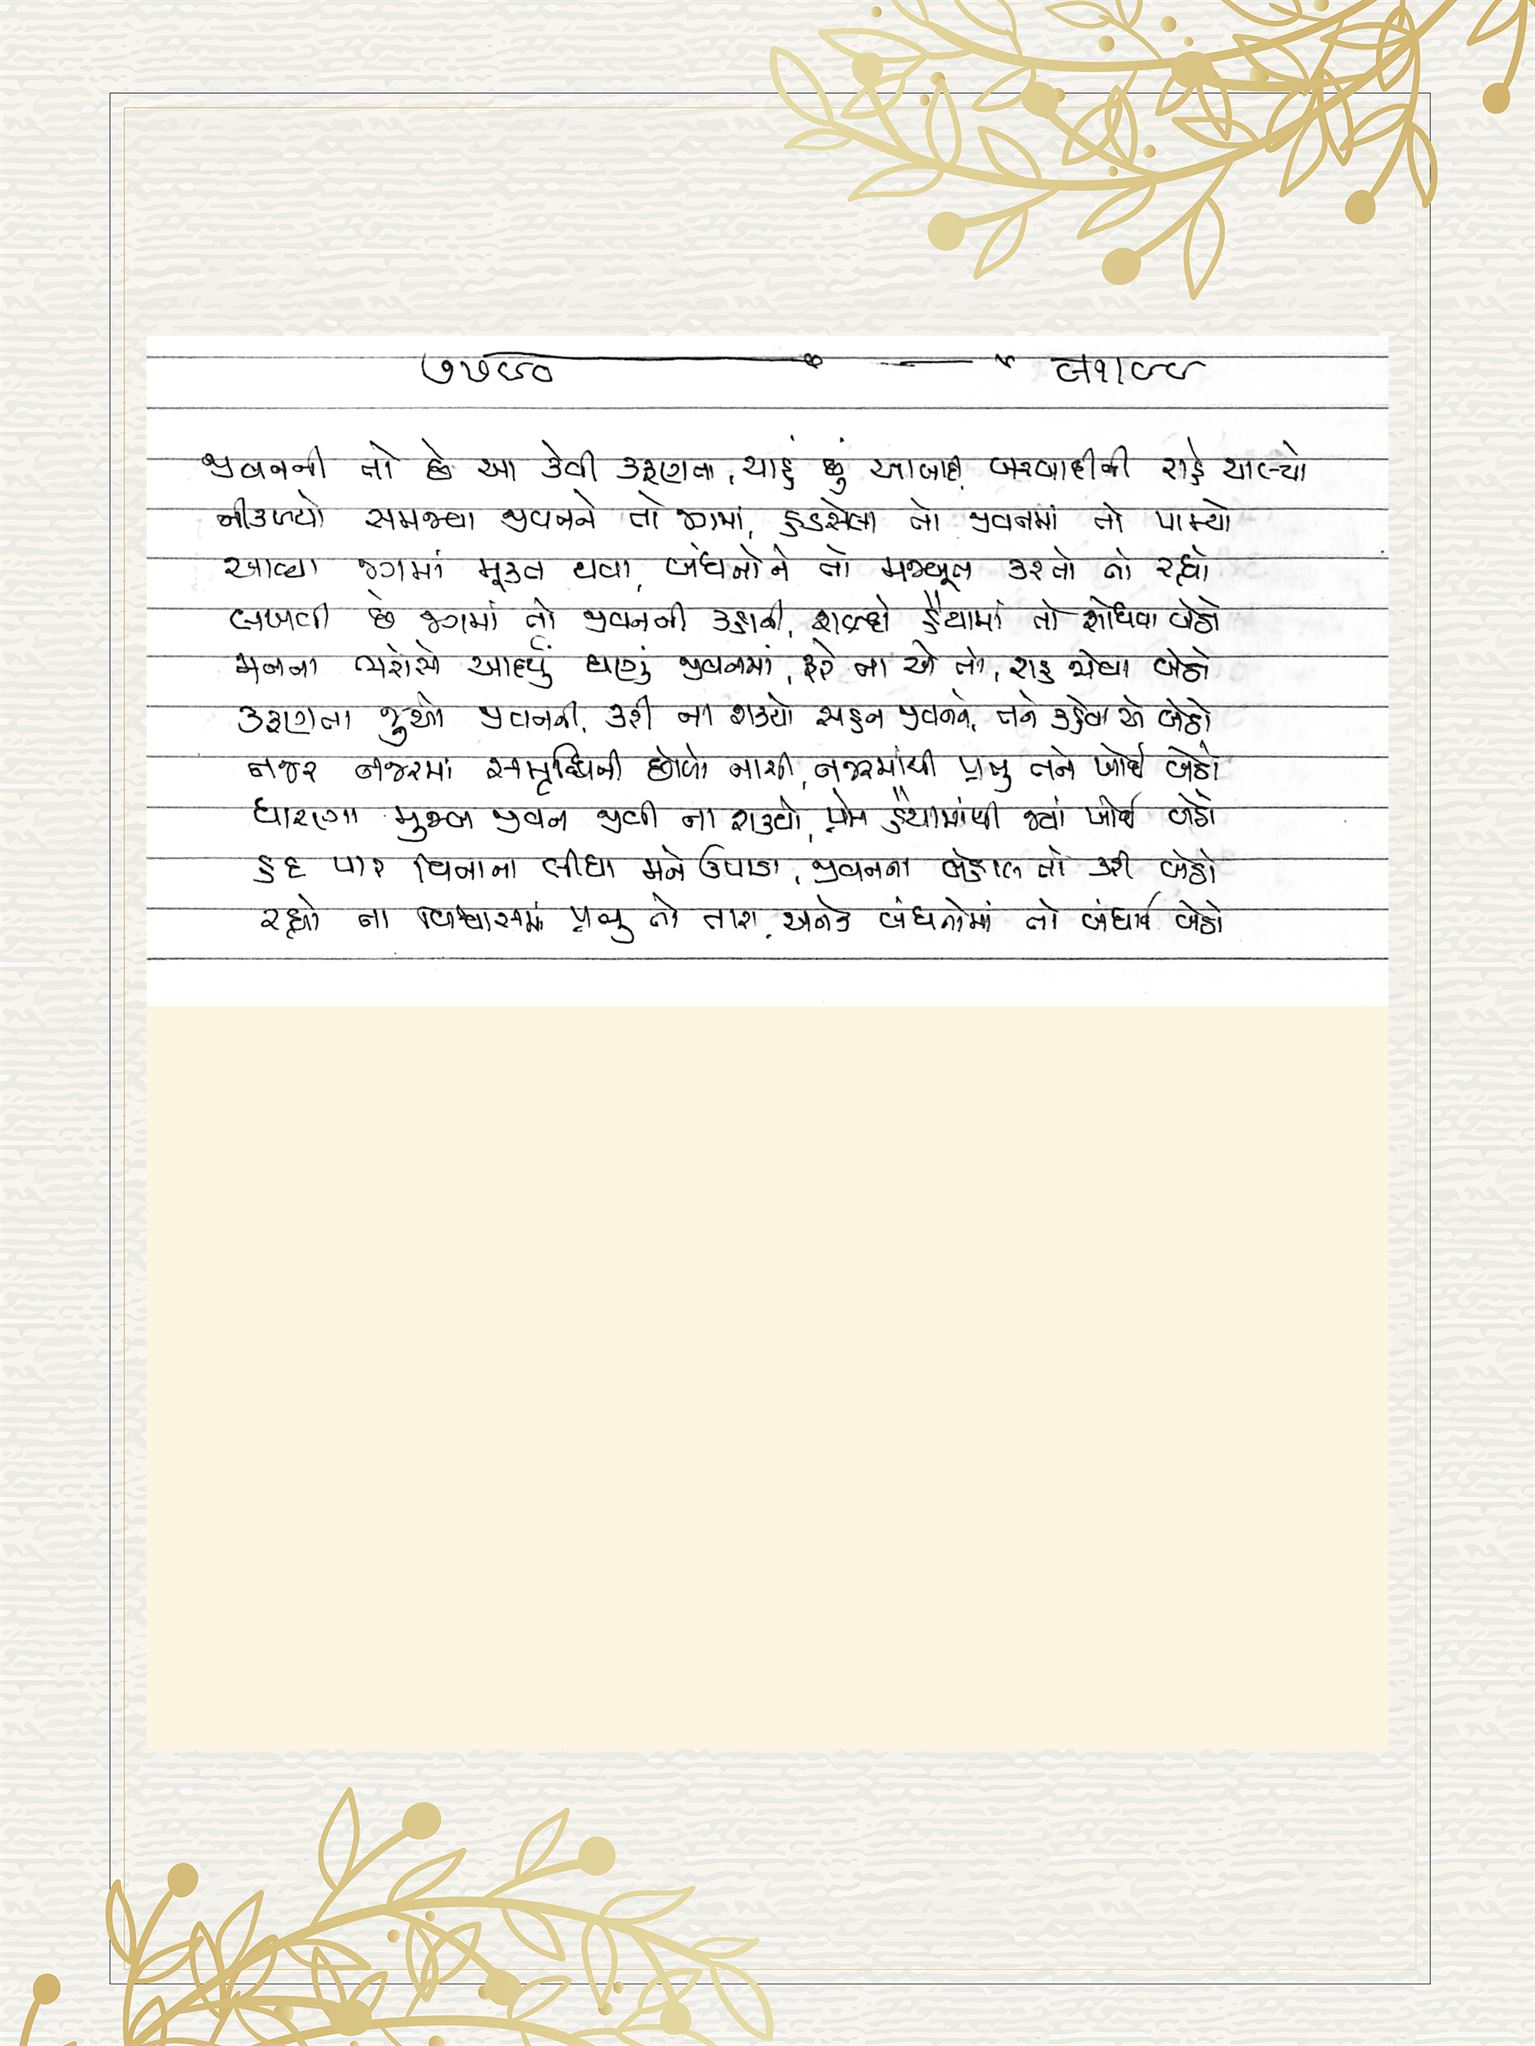 જીવનની તો છે આ કેવી કરૂણતા, ચાહું છું આબાદી, બરબાદીની રાહે ચાલ્યો
નીકળ્યો સમજવા જીવનને તો જગમાં, હડસેલા તો જીવનમાં તો પામ્યો
આવ્યા જગમાં મૂક્ત થવા, બંધનોને તો મજબૂત કરતો તો રહ્યો
લખવી છે જગમાં તો જીવનની કહાની, શબ્દો હૈયામાં તો શોધવા બેઠો
મનના ભરોસે આદર્યું ઘણું જીવનમાં, ફરે ના એ તો, રાહ જોવા બેઠો
કરૂણતા જુઓ જીવનની, કરી ના શક્યો સહન જીવનને, તને કહેવા એ બેઠો
નજર નજરમાં સમૃદ્ધિની છોળો નાચી, નજરમાંથી પ્રભુ તને ખોઈ બેઠો
ધારણા મુજબ જીવન જીવી ના શક્યો, પ્રેમ હૈયામાંથી જ્યાં ખોઈ બેઠો
હદ પાર વિનાના લીધા મને ઉપાડા, જીવનના બેહાલ તો કરી બેઠો
રહ્યો ના વિશ્વાસમાં પ્રભુ તો તારા, અનેક બંધનોમાં તો બંધાઈ બેઠો